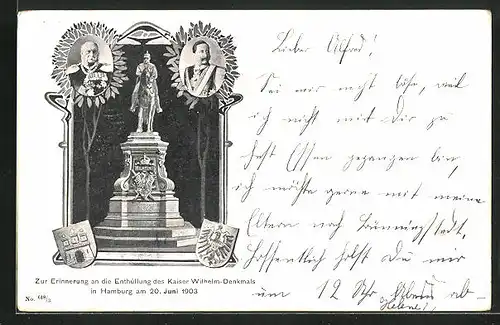 Lieber Alfred!
Sei mir nicht böse, weil
ich nicht mit Dir zu
Essen gegangen bin,
ich möchte gerne mit meinen
Eltern nach
Hoffentlich holst Du mir
um 12 Uhr ab
Zur Erinnerung an die Enthüllung des Kaiser Wilhelm-Denkmals
in Hamburg am 20. Juni 1903
No.